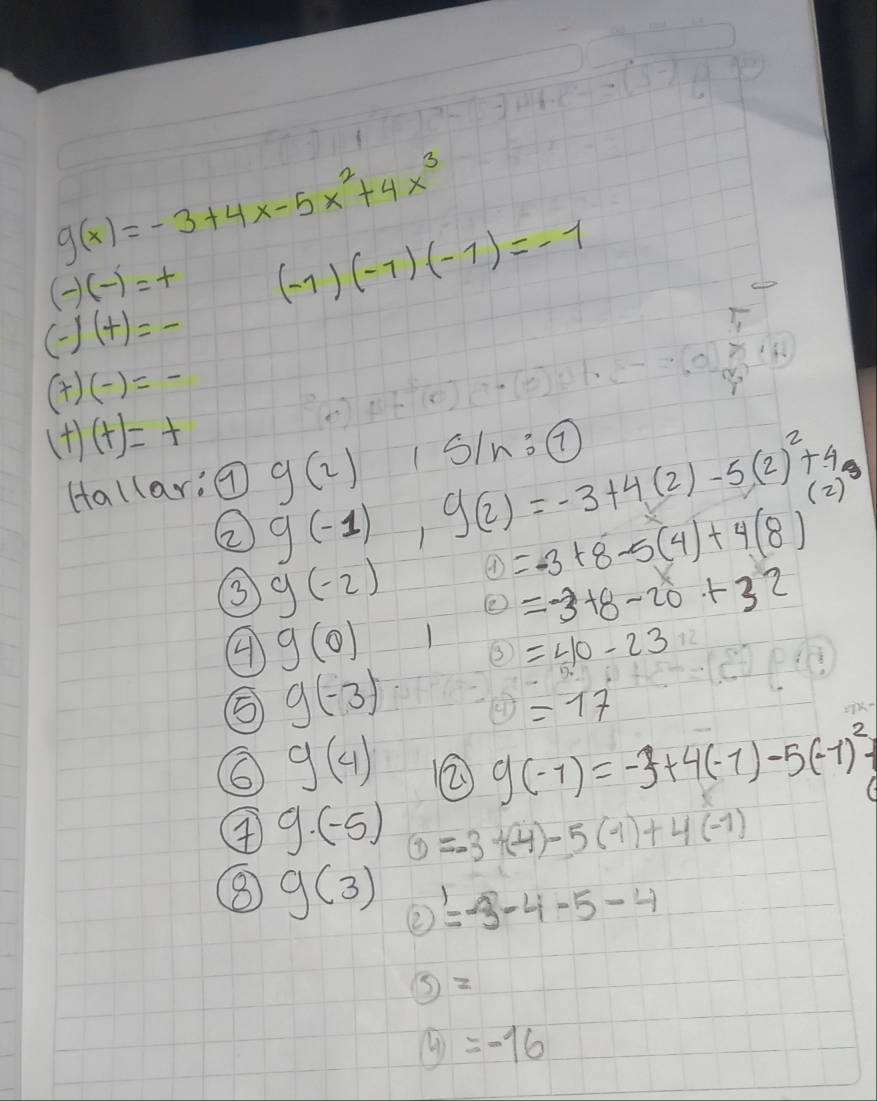 g(x) = -3+4x-5x²+4x³
(-)(-) = +
(-1)(-1)(-1) = -1
(-)(+) = -
(+)(-) = -
(+)(+) = +
Hallar: ① g(2)
② g(-1)
③ g(-2)
④ g(0)
⑤ g(-3)
⑥ g(4)
⑦ g.(-5)
⑧ g(3)
S/n: ①
g(2) = -3+4(2)-5(2)²+4
(2)³
① = -3+8-5(4)+4(8)
② = -3+8-20+32
③ = 40-23
④ = 17
② g(-1) = -3+4(-1)-5(-1)²+
① = -3+(-4)-5(1)+4(-1)
② = -3-4-5-4
③ =
④ = -16